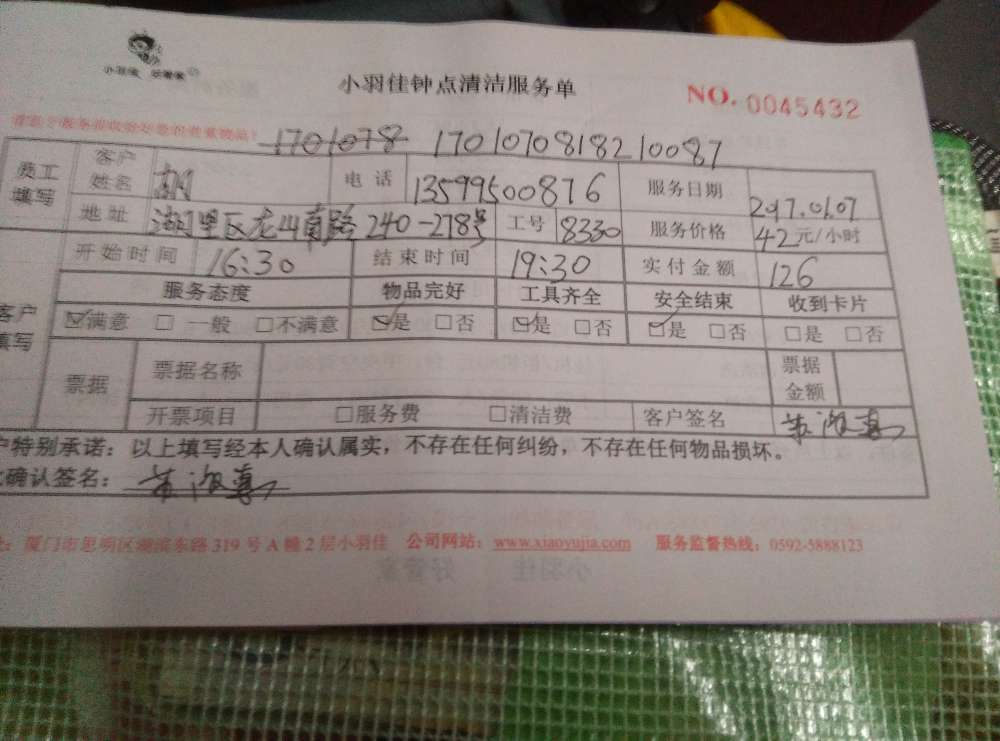 小羽佳 好管家
小羽佳钟点清洁服务单
NO. 0045432
1701078 1701070818210087
员工填写 客户姓名 胡 电话 13599500876 服务日期 2017.01.07
地址 湖里区龙山南路240-278号 工号 8330 服务价格 42元/小时
开始时间 16:30 结束时间 19:30 实付金额 126
客户填写 服务态度 物品完好 工具齐全 安全结束 收到卡片
☑满意 □一般 □不满意 ☑是 □否 ☑是 □否 ☑是 □否 □是 □否
票据 票据名称 票据金额
开票项目 □服务费 □清洁费 客户签名
户特别承诺：以上填写经本人确认属实，不存在任何纠纷，不存在任何物品损坏。
确认签名：
厦门市思明区湖滨东路319号A幢2层小羽佳 公司网站：www.xiaoyujia.com 服务监督热线：0592-5888123